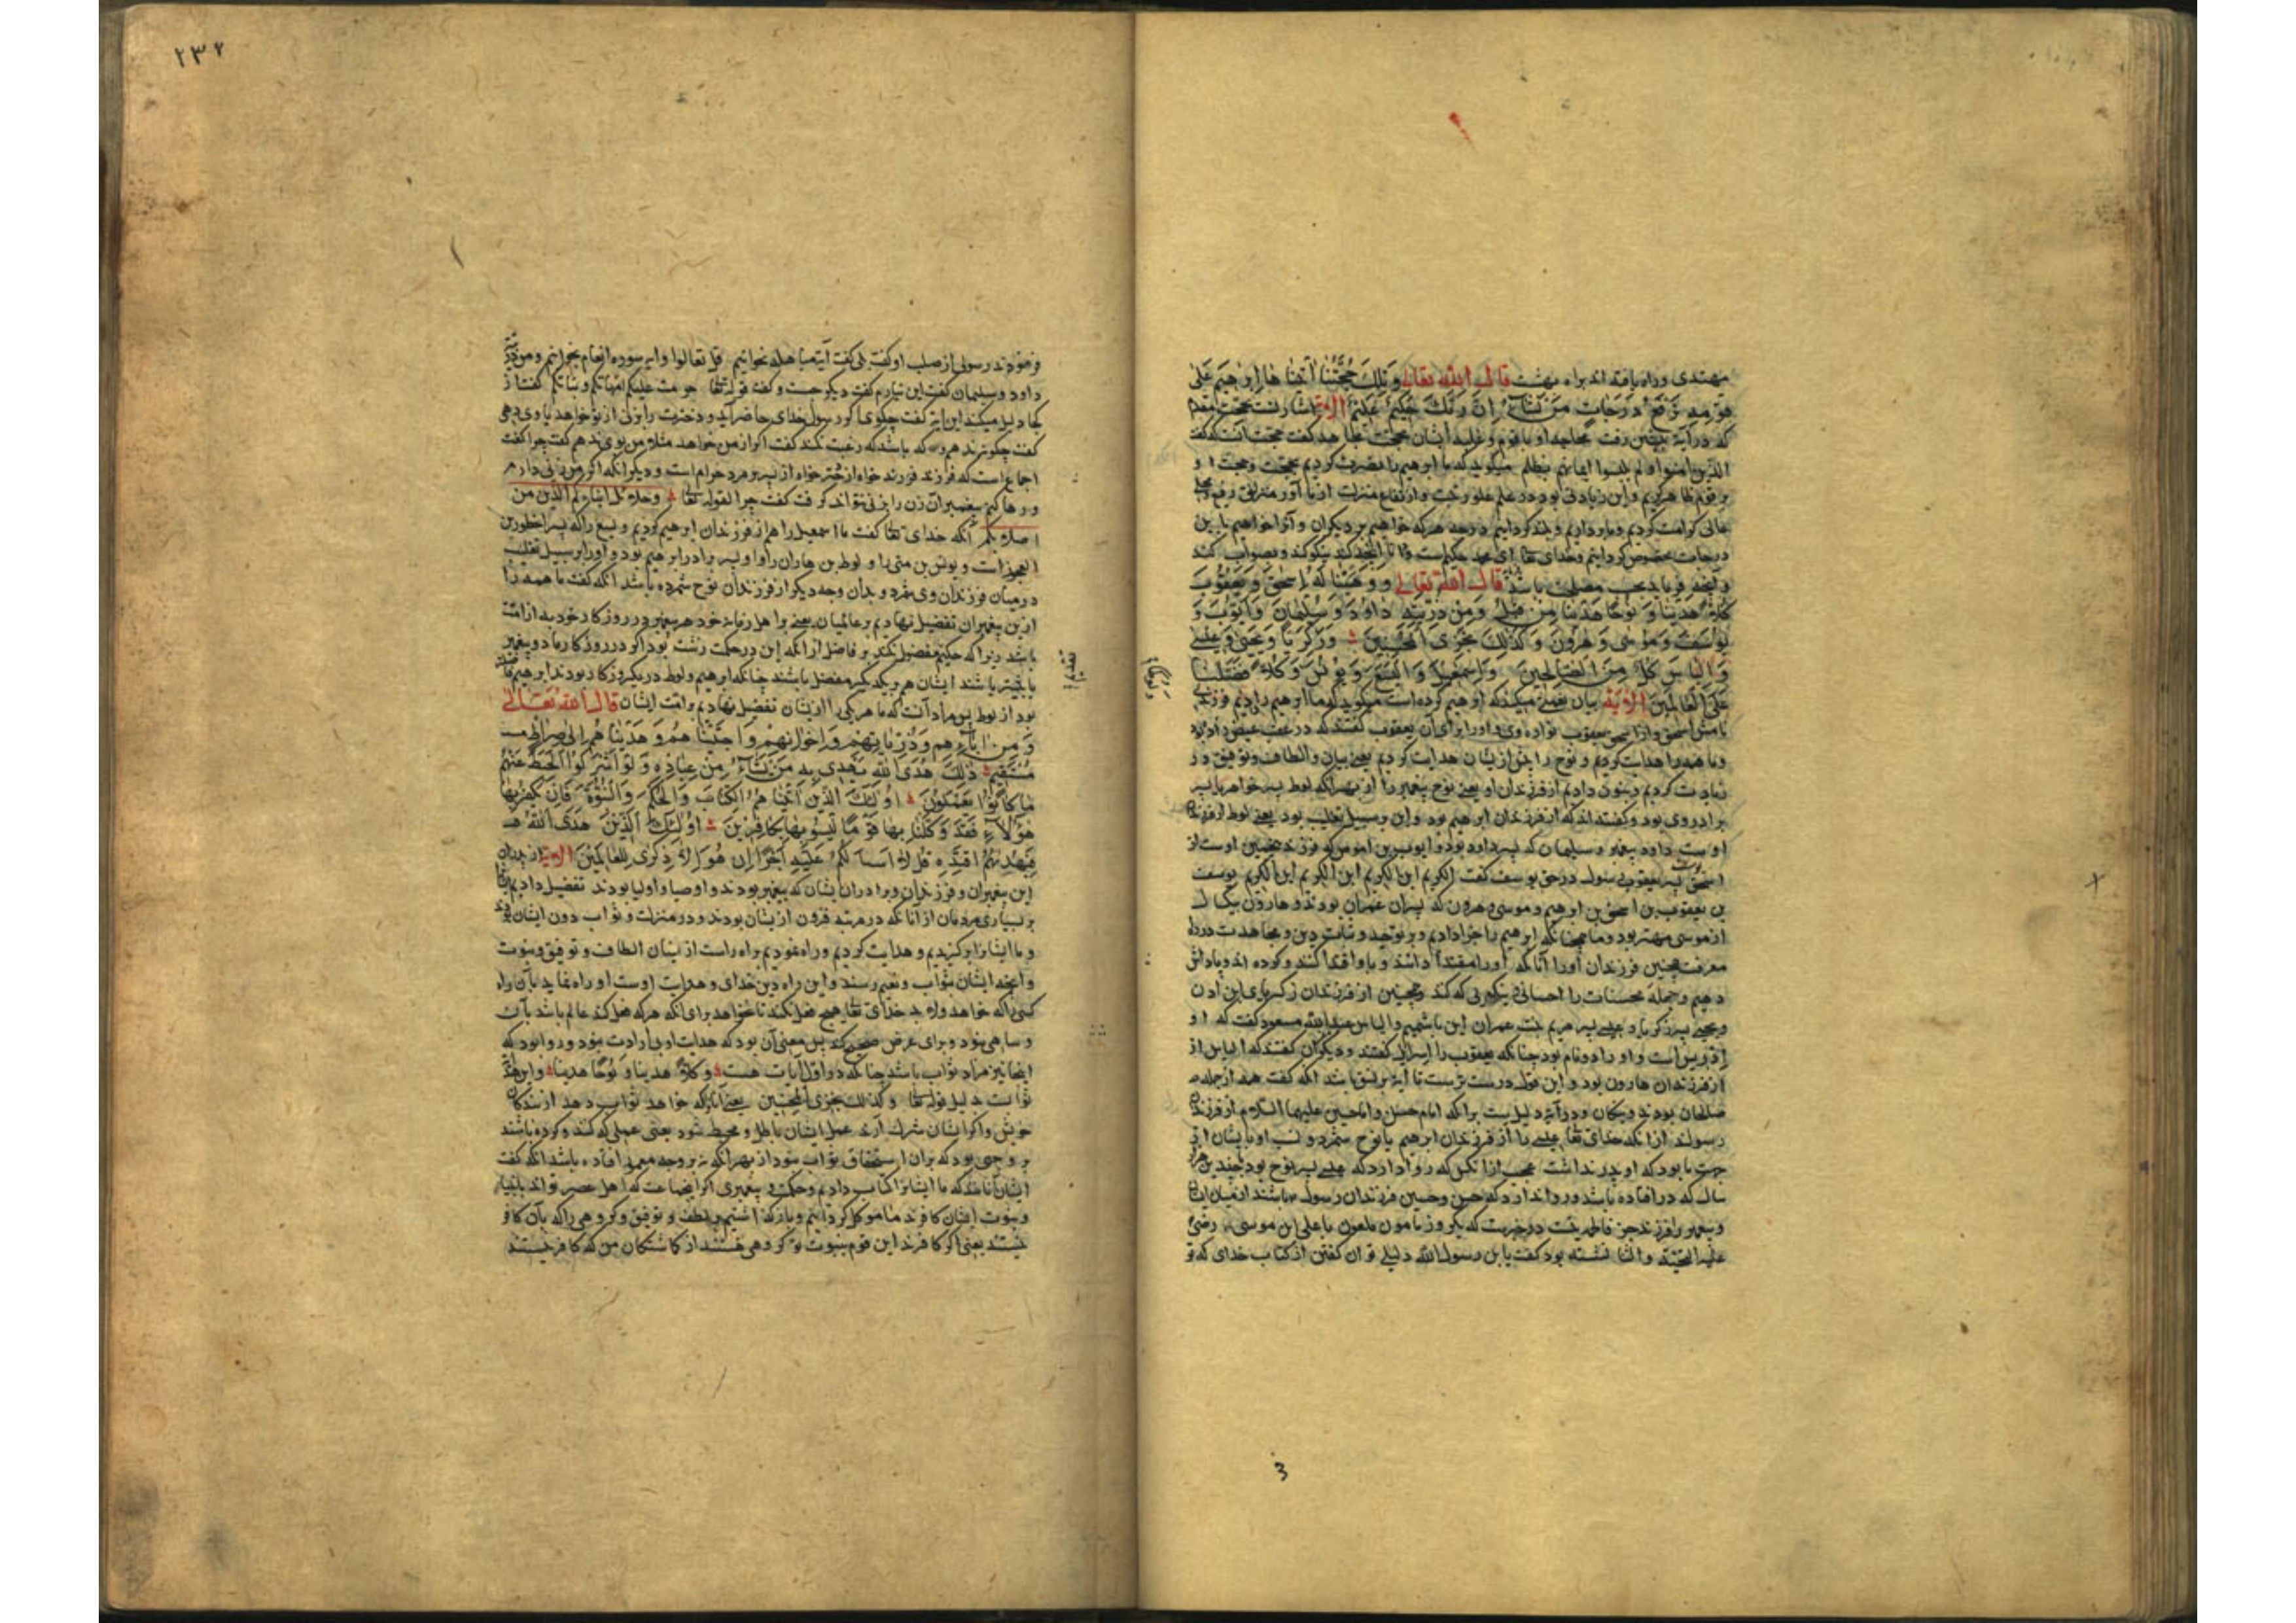 مهتدی وراه یافته اند براه بهشت قال الله تعالی وَتِلْكَ حُجَّتُنَا آتَيْنَاهَا إِبْرَهِيمَ عَلَى
قَوْمِهِ نَرْفَعُ دَرَجَاتٍ مَنْ نَشَاءُ إِنَّ رَبَّكَ حَكِيمٌ عَلِيمٌ الآیة اشارتست بحجت
که در آیة پیشین رفت محاجه او با قوم و غلبه ایشان بحجت مجاهد گفت حجت آنست که گفت
الذین امنوا ولم یلبسوا ایمانهم بظلم میگوید که ما ابرهیم را نصرت کردیم بحجت و حجت او
بر قوم ظاهر کردیم و این زیادتی بود در علم علو رتبت و ارتفاع منزلت از ما و هر منزلتی رفیع
عالی کرامت کردیم و بلند گردانیم درجه هر که خواهیم بر دیگران و آنرا خواهیم باین
درجات مخصوص گردانیم وخدای تعا ای محمد حکیم است و آنچه کند نیکو کند و بصواب کند
و آنچه فرماید بحسب مصلحت باشد قال الله تعالی وَوَهَبْنَا لَهُ إِسْحَقَ وَيَعْقُوبَ
كُلًّا هَدَيْنَا وَنُوحًا هَدَيْنَا مِنْ قَبْلُ وَمِنْ ذُرِّيَّتِهِ دَاوُدَ وَسُلَيْمَانَ وَأَيُّوبَ وَ
يُوسُفَ وَمُوسَى وَهَرُونَ وَكَذَلِكَ نَجْزِي الْمُحْسِنِينَ وَزَكَرِيَّا وَيَحْيَى وَعِيسَى
وَإِلْيَاسَ كُلٌّ مِنَ الصَّالِحِينَ وَإِسْمَعِيلَ وَالْيَسَعَ وَيُونُسَ وَكُلًّا فَضَّلْنَا
عَلَى الْعَالَمِينَ الآیة بیان نعمتی میکند که با ابرهیم کرده است میگوید که ما ابرهیم را دادیم فرزندی
نامش اسحق و از اسحق یعقوب نواده وی داد او را برای آن یعقوب گفتند که در عقب عیص زاده بود
وما همه را هدایت کردیم و نوح را پیش ازیشان هدایت کردیم یعنی ببیان والطاف و توفیق و در
زیادت کردیم و نبوت دادیم از فرزندان او یعنی نوح پیغمبر را از بهر آنکه لوط پسر خواهر یا پسر
برادر وی بود و گفته اند که از فرزندان ابرهیم بود و این بر سبیل تغلیب بود یعنی لوط از فرزندان
اوست داود پیغمبر و سلیمان که پسر داود بود و ایوب بن اموص که فرزند عیص اوست از
اسحق پسر یعقوب رسول در حق یوسف گفت الکریم ابن الکریم ابن الکریم ابن الکریم یوسف
بن یعقوب بن اسحق بن ابرهیم و موسی و هرون که پسران عمران بودند و هارون بیکسال
از موسی مهتر بود وما همچنانکه ابرهیم را جزا دادیم و بر توحید و ثبات دین و مجاهدت در راه
معرفت همچنین فرزندان او را آنانکه او را مقتدا دانند و باو اقتدا کنند و کرده اند پاداش
دهیم وجمله محسنات را احسانی و نیکویی که کند و همچنین از فرزندان زکریا بن ادن
و یحیی پسر زکریا و عیسی پسر مریم بنت عمران ابن یاشهیم والیاس عبدالله مسعود گفت که او
ادریس است و او را دو نام بود چنانکه یعقوب را اسرائیل گفتند و دیگران گفتند که الیاس از
از فرزندان هارون بود و این قول درست ترست تا آیة بر نسق باشد آنکه گفت همه از جمله
صالحان بودند و نیکان و در آیة دلیل است برآنکه امام حسن و امام حسین علیهما السلام از فرزندان
رسولند از آنکه خدای تعا عیسی را از فرزندان ابرهیم یا نوح شمرد و نسب او با یشان از
جهت مادر بود که او پدر نداشت عجب از آنکس که روا دارد که عیسی پسر نوح بود بچندین هزار
سال که در افتاده باشد و روا ندارد که حسن وحسین فرزندان رسول باشند از میان ایشان
و پیغمبر را فرزند جز فاطمه نیست در خبرست که یکروز مامون ملعون با علی ابن موسی رضی
علیه التحیة والثنا نشسته بود گفت یا بن رسول الله دلیلی توان گفتن از کتاب خدای که تو
3
٢٣٢
فرموند رسولی از صلب او گفت بلی گفت آیة مباهله نخوانیم قل تعالوا و این سوره انعام بخوانیم ومن ذریته
داود وسلیمان گفت این نیارم گفت دیگر چیست و گفت قوله تعا حرمت علیکم امهاتکم وبناتکم گفت از
کجا دلیل میکند این آیة گفت چگوی اگر رسول خدای حاضر آید و دخترت را بزنی از تو خواهد باوی دهی
گفت چگونه ندهم و که باشد که رغبت نکند گفت اگر از من خواهد مثلا من بوی ندهم گفت چرا گفت
اجماع است که فرزند فرزند خواه از دختر خواه از پسر بر مرد حرام است و دیگر آنکه اگر من زنی دارم
و رها کنم پیغمبر آن زن را بزنی نتواند گرفت گفت چرا لقوله تعا وحلائل ابنائکم الذین من
اصلابکم آنکه خدای تعا گفت ما اسمعیل را هم از فرزندان ابرهیم کردیم و یسع را که پسر اخطوب بن
العجوز است و یونس بن متی را و لوط بن هاران را و او پسر برادر ابرهیم بود و او را بر سبیل تغلیب
در میان فرزندان وی شمرد و بدان وجه دیگر از فرزندان نوح شمرده باشد آنکه گفت ما همه را
ازین پیغمبران تفضیل نهادیم بر عالمیان یعنی بر اهل زمانه خود هر پیغمبر در روزگار خود به از امت
باشد زیرا که حکیم مفضول نکند بر فاضل از آنکه این در حکمت زشت بود اگر در روزگار ما دو پیغمبر
یا بیشتر باشند ایشان هم بر یکدیگر مفضل باشند چنانکه ابرهیم ولوط در یکروزگار بودند ابرهیم فاضلتر
بود از لوط پس مراد آنست که ما هر یکی را ازیشان تفضیل نهادیم بر امت ایشان قال الله تعالی
وَمِنْ آبَائِهِمْ وَذُرِّيَّاتِهِمْ وَإِخْوَانِهِمْ وَاجْتَبَيْنَاهُمْ وَهَدَيْنَاهُمْ إِلَى صِرَاطٍ
مُسْتَقِيمٍ ذَلِكَ هُدَى اللَّهِ يَهْدِي بِهِ مَنْ يَشَاءُ مِنْ عِبَادِهِ وَلَوْ أَشْرَكُوا لَحَبِطَ عَنْهُمْ
مَا كَانُوا يَعْمَلُونَ أُولَئِكَ الَّذِينَ آتَيْنَاهُمُ الْكِتَابَ وَالْحُكْمَ وَالنُّبُوَّةَ فَإِنْ يَكْفُرْ بِهَا
هَؤُلَاءِ فَقَدْ وَكَّلْنَا بِهَا قَوْمًا لَيْسُوا بِهَا بِكَافِرِينَ أُولَئِكَ الَّذِينَ هَدَى اللَّهُ
فَبِهُدَيهُمُ اقْتَدِهِ قُلْ لَا أَسْأَلُكُمْ عَلَيْهِ أَجْرًا إِنْ هُوَ إِلَّا ذِكْرَى لِلْعَالَمِينَ الآیة از پدران
این پیغمبران و فرزندان و برادران ایشان که پیغمبر بودند و اوصیا و اولیا بودند تفضیل دادیم
بر بسیاری مردمان از آنانکه در مرتبه فزون ازیشان بودند و در منزلت و ثواب دون ایشان بودند
و ما ایشانرا برگزیدیم و هدایت کردیم وراه نمودیم براه راست از بیان الطاف و توفیق و نبوت
و آنچه ایشان بثواب و نعیم رسند و این راه دین خدای و هدایت اوست او راه نماید بآن راه
کسی را که خواهد و خدای تعا هیچ فعل نکند تا نخواهد برای آنکه هر که فعل کند عالم باشد بآن
و ساهی نبود و برای غرض صحیح کند پس معنی آن بود که هدایت او بارادت بود و روا بود که
اینجا نیز مراد ثواب باشد چنانکه در اول آیات هست و کلا هدینا و نوحا هدینا و این
ثوابست بدلیل قوله تعا وکذلك نجزی المحسنین یعنی آنانرا که خواهد ثواب دهد از بندگان
خویش و اگر ایشان شرک آرند عمل ایشان باطل و محبط شود یعنی عملی که کنند و کرده باشند
بر وجهی بود که بران استحقاق ثواب نبود از بهر آنکه نه بر وجه مامور افتاده باشد آنکه گفت
ایشان آنانند که ما ایشانرا کتاب دادیم و حکمت و پیغمبری اگر این جماعت که اهل عصر تواند بانبیا
و نبوت ایشان کافرند ما موکل گردانیم و بازگذاشتیم بلطف و توفیق و گروهی را که بآن کافر
نیستند یعنی اگر کافرند این قوم بنبوت تو گروهی هستند از گماشتگان من که کافر نیستند